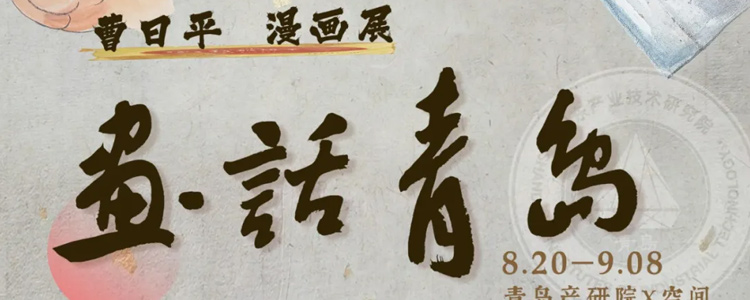 曹日平 漫画展
画·話青岛
8.20—9.08
青岛产研院X空间
产业技术研究院